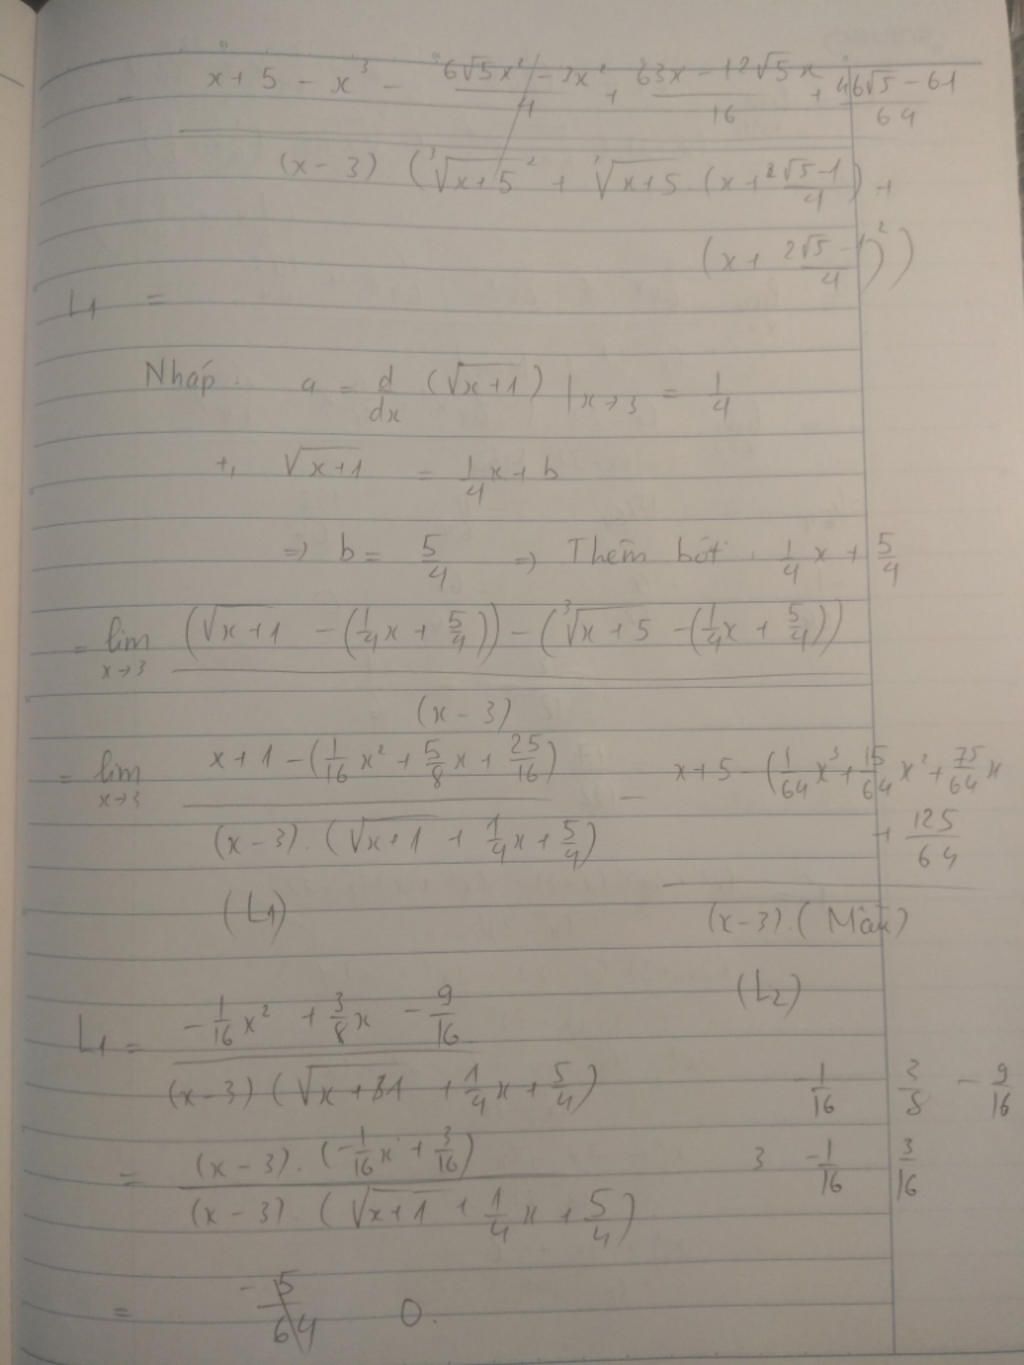 x + 5 - x³ - 6√5x² - 3x² / 4 + 63x - 12√5x / 16 + 46√5 - 61 / 64
(x - 3) (³√x+5² + ³√x+5 (x + 2√5 - 1 / 4) +
(x + 2√5 - 1 / 4)²)
L₁ =
Nháp. a = d/dx (√x+1) |x→3 = 1/4
+, √x+1 = 1/4x + b
=> b = 5/4 => Thêm bớt. 1/4 x + 5/4
= lim x→3 (√x+1 - (1/4x + 5/4)) - (³√x+5 - (1/4x + 5/4))
(x - 3)
= lim x→3 x + 1 - (1/16 x² + 5/8x + 25/16) / (x - 3). (√x+1 + 1/4x + 5/4) - x + 5 - (1/64x³ + 15/64x² + 75/64x
+ 125/64
(L₁) (x-3). (Mẫu)
(L₂)
L₁ = -1/16x² + 3/8x - 9/16
(x - 3) (√x+1 + 1/4x + 5/4) -1/16 3/8 - 9/16
= (x - 3). (-1/16x + 3/16) 3 -1/16 3/16
(x - 3). (√x+1 + 1/4x + 5/4)
= -5/64 0.